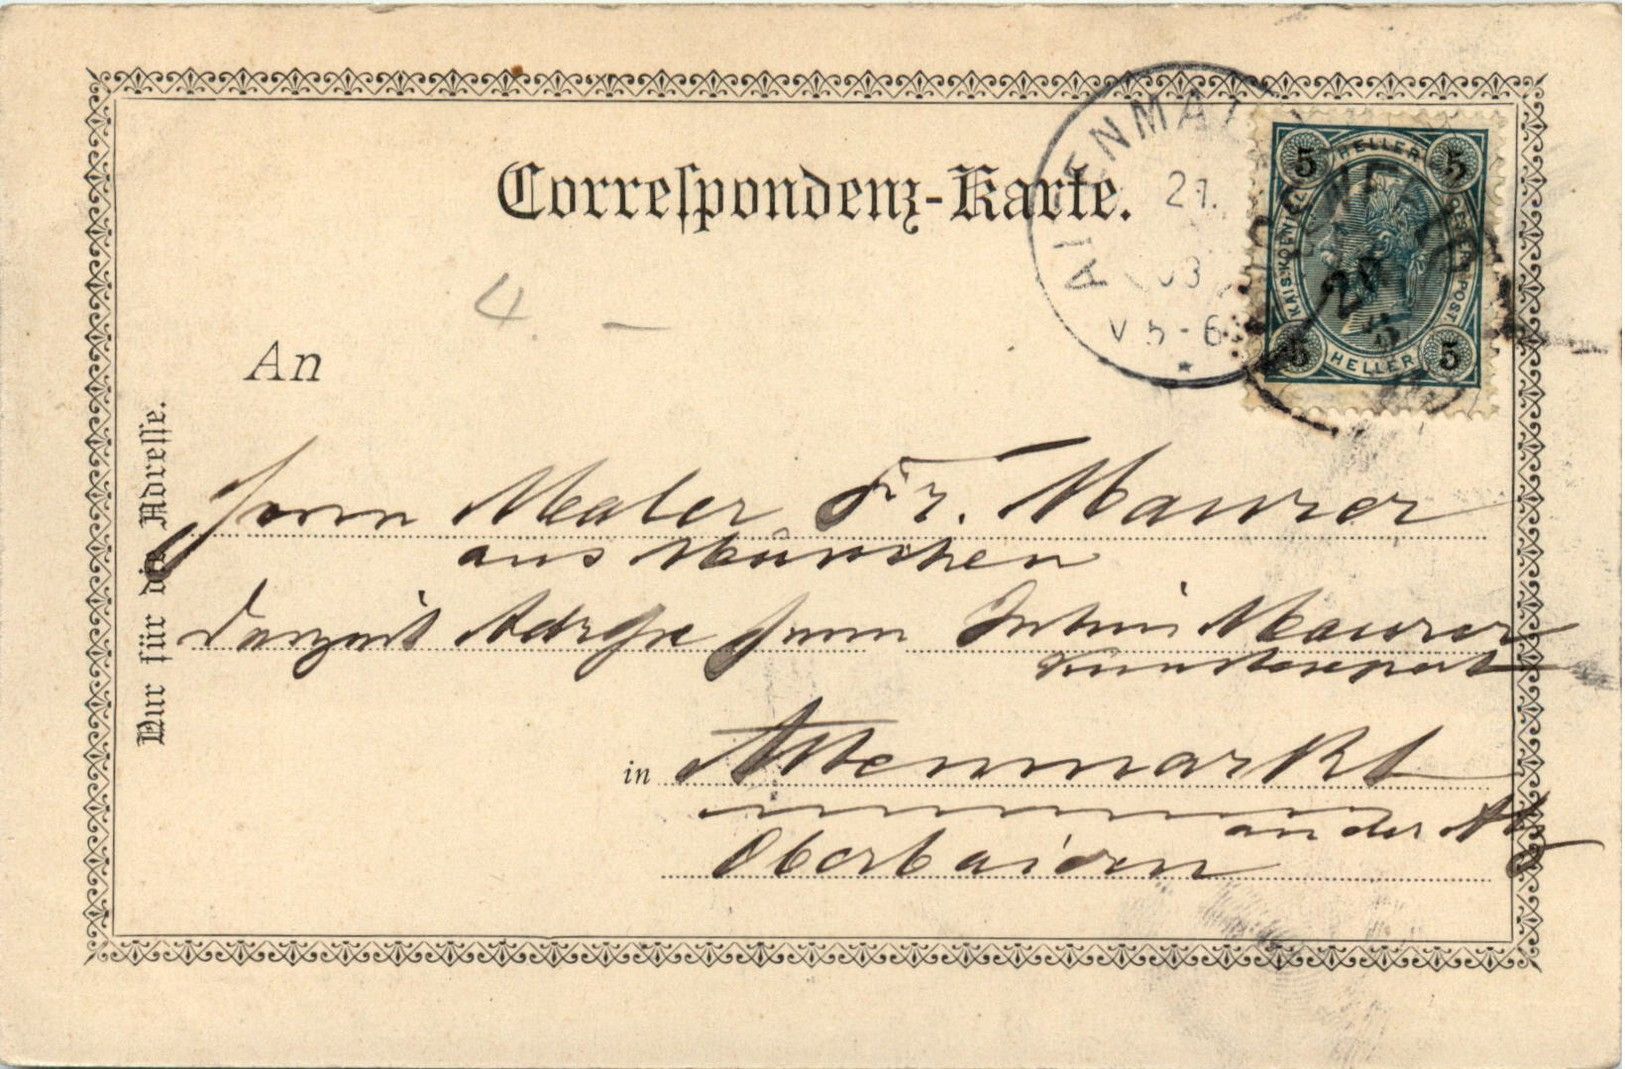 Correspondenz-Karte.
21.
03
V 5-6
5 HELLER 5
5 HELLER 5
20
4. –
An
Nur für die Adresse.
Herrn Maler Fr. Maurer
aus München
derzeit Adresse Herrn Maurer
in Altenmarkt
an der Alz
Oberbaiern